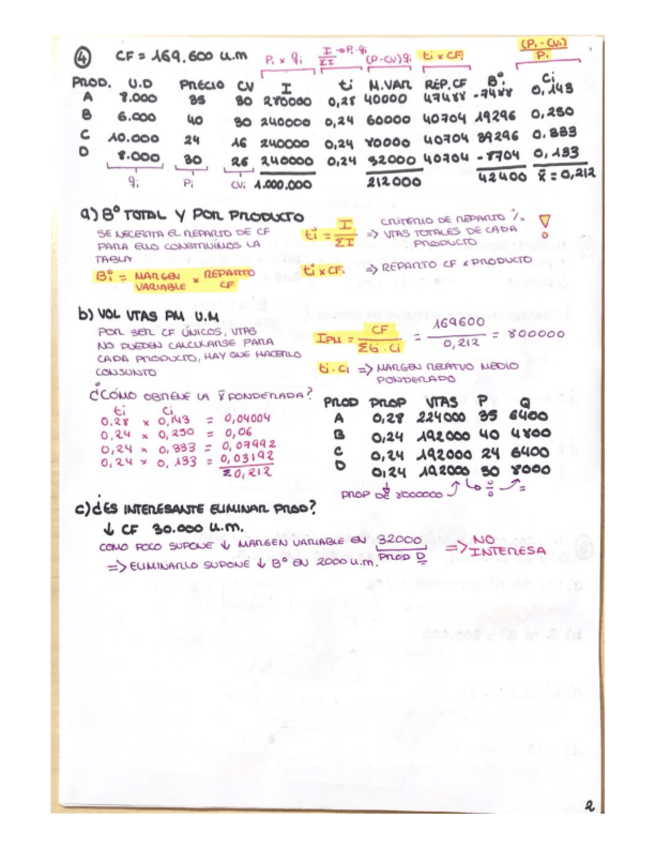 ④ CF = 169.600 u.m Pi x qi I/ΣI → Pi·qi (P-CV)qi ti x CFi (Pi - CVi)/Pi
PROD. U.D PRECIO CV I ti M.VAR REP.CF Bº Ci
A 8.000 35 30 280000 0,28 40000 47488 -7488 0,143
B 6.000 40 30 240000 0,24 60000 40704 19296 0,250
C 10.000 24 16 240000 0,24 80000 40704 39296 0.333
D 8.000 30 26 240000 0,24 32000 40704 -8704 0,133
qi Pi CVi 1.000.000 212000 42400 x̄ = 0,212
a) Bº TOTAL Y POR PRODUCTO
SE NECESITA EL REPARTO DE CF
PARA ELLO CONSTRUIMOS LA
TABLA
Bºi = MARGEN VARIABLE x REPARTO CF
ti = I/ΣI => CRITERIO DE REPARTO %
VTAS TOTALES DE CADA
PRODUCTO
ti x CFi => REPARTO CF x PRODUCTO
b) VOL VTAS PM U.M
POR SER CF ÚNICOS, VTAS
NO PUEDEN CALCULARSE PARA
CADA PRODUCTO, HAY QUE HACERLO
CONJUNTO
IPM = CF/Σti·Ci = 169600/0,212 = 800000
ti·Ci => MARGEN RELATIVO MEDIO
PONDERADO
¿CÓMO OBTIENE LA x̄ PONDERADA?
ti Ci
0,28 x 0,143 = 0,04004
0,24 x 0,250 = 0,06
0,24 x 0,333 = 0,07992
0,24 x 0,133 = 0,03192
Σ0,212
PROD PROP VTAS P Q
A 0,28 224000 35 6400
B 0,24 192000 40 4800
C 0,24 192000 24 6400
D 0,24 192000 30 8000
PROP DE 800000
c) ¿ES INTERESANTE ELIMINAR PROD?
↓ CF 30.000 u.m.
COMO POCO SUPONE ↓ MARGEN VARIABLE EN 32000 PROD D => NO INTERESA
=> ELIMINARLO SUPONE ↓ Bº EN 2000 u.m.
2